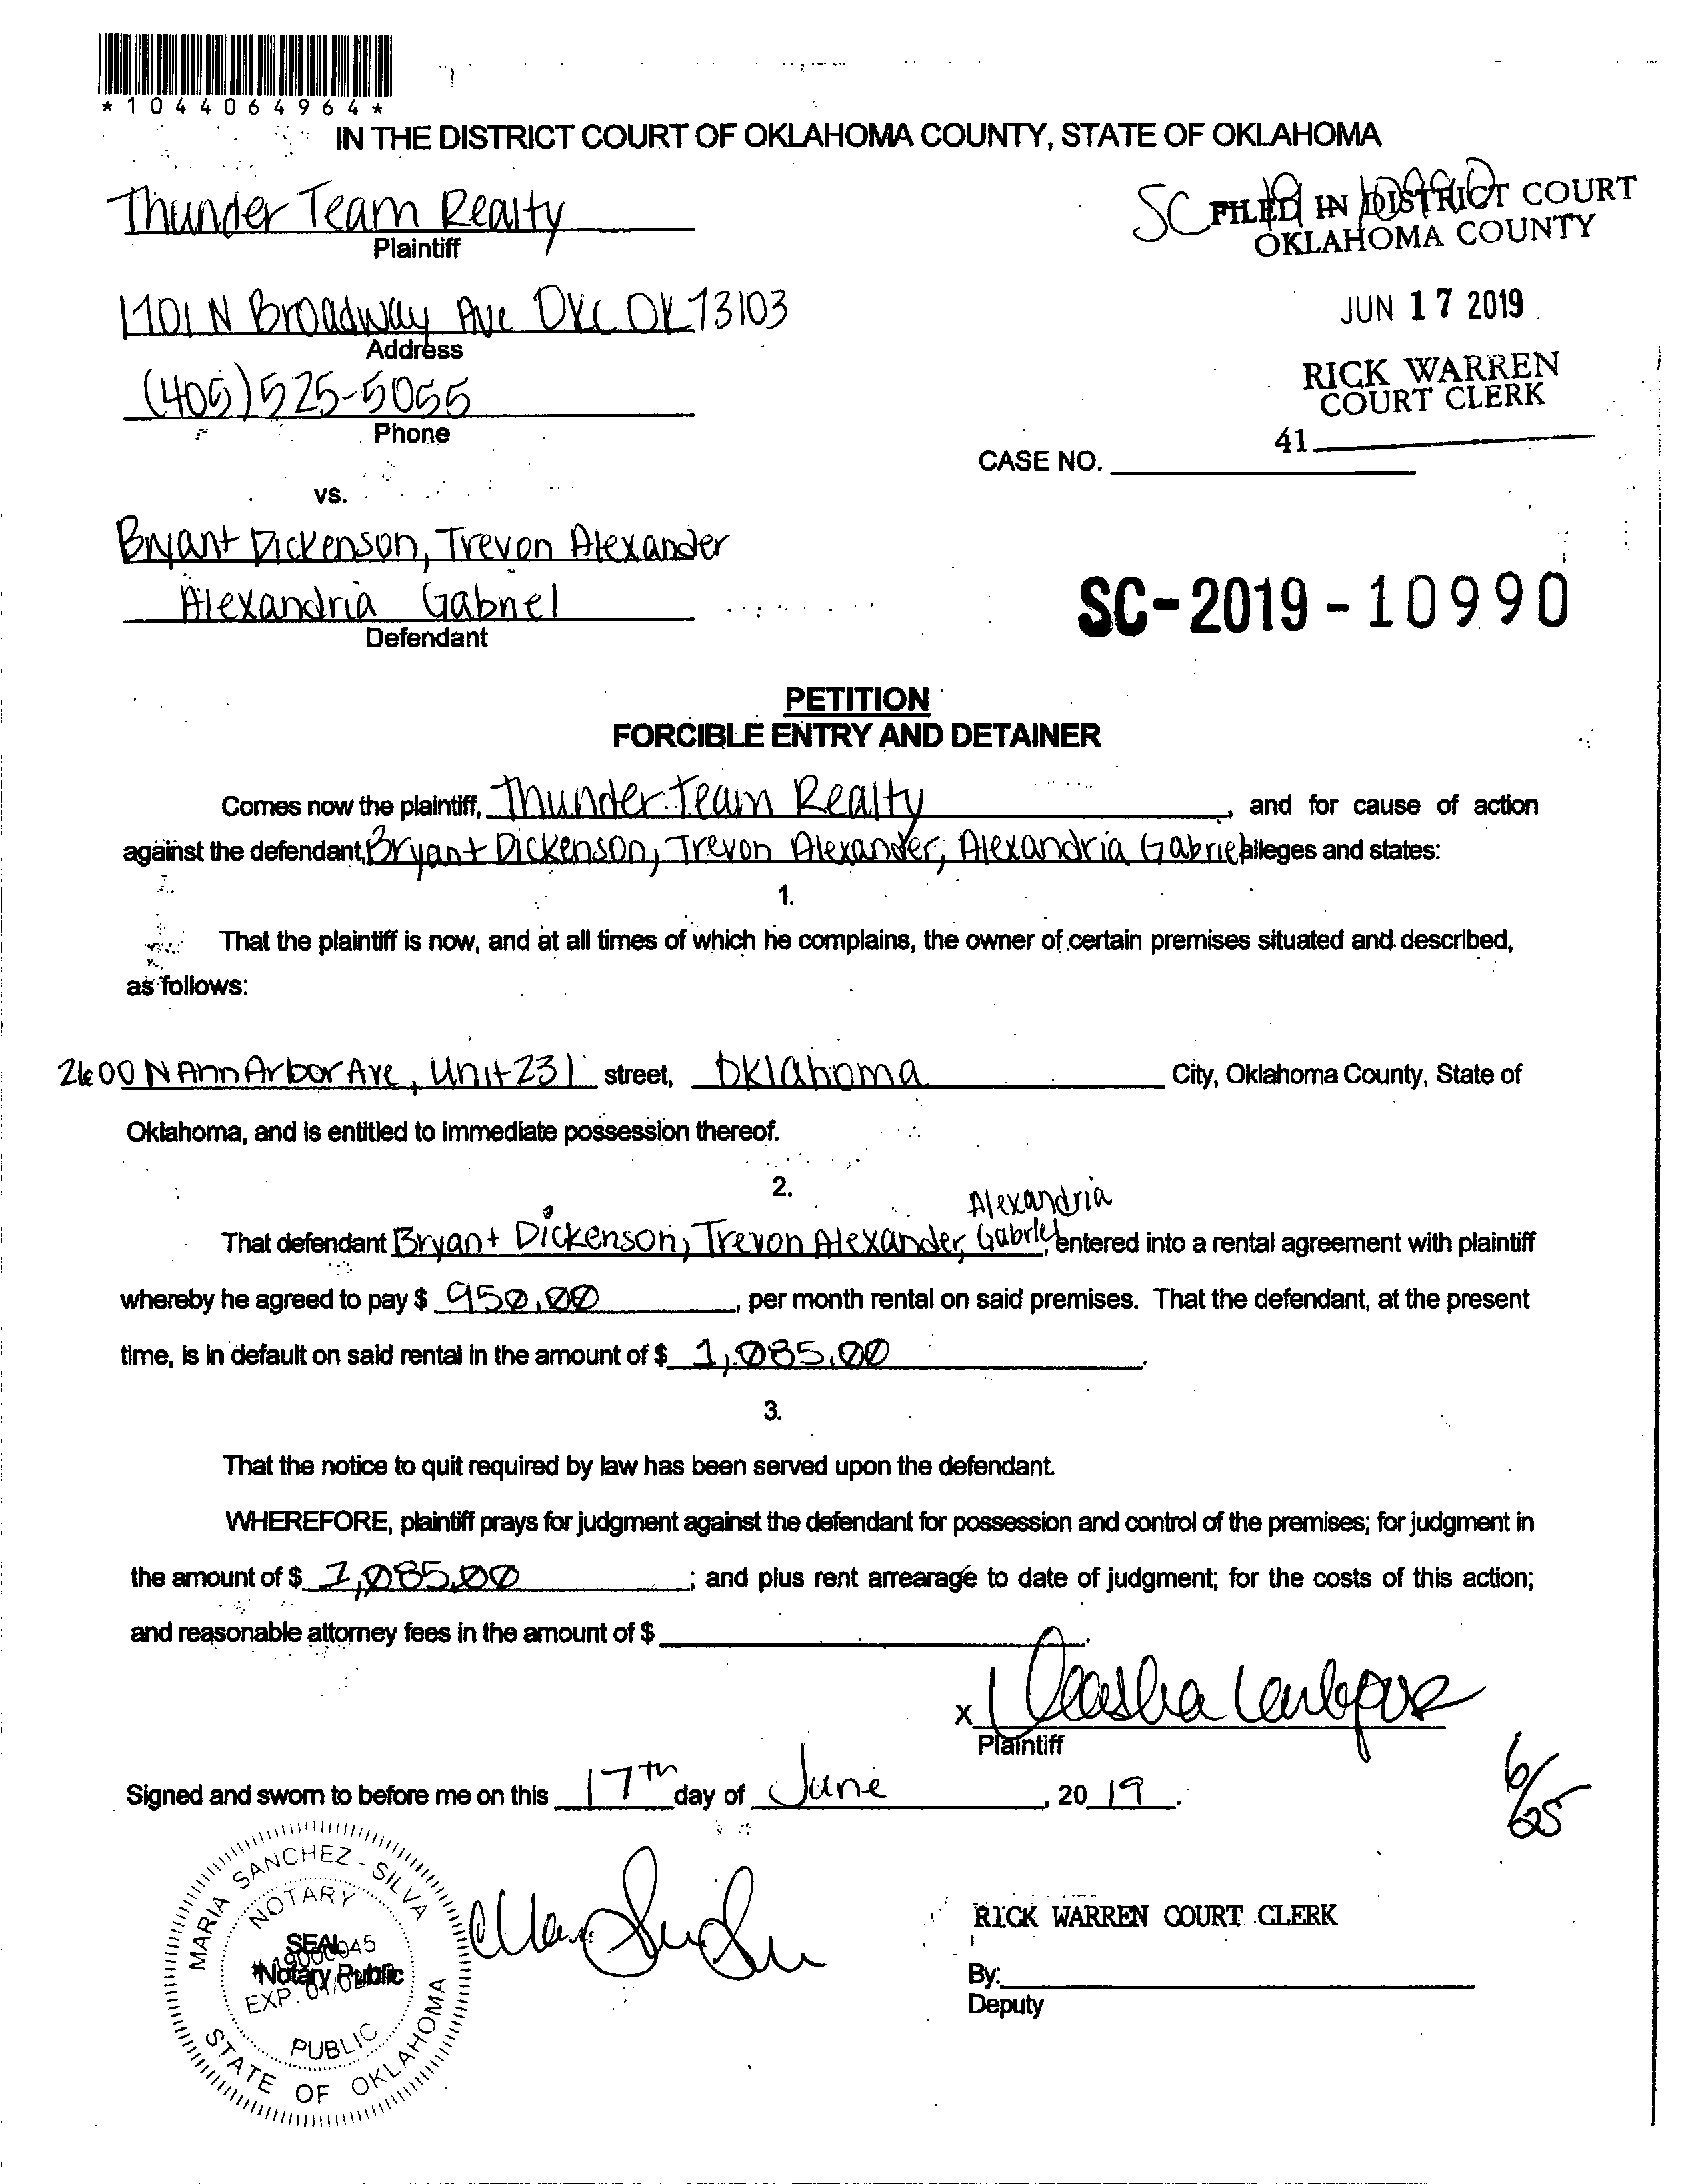 *1044064964*
IN THE DISTRICT COURT OF OKLAHOMA COUNTY, STATE OF OKLAHOMA
Thunder Team Realty
Plaintiff
SC 19 10990
FILED IN DISTRICT COURT
OKLAHOMA COUNTY
1701 N Broadway Ave OKC OK 73103
Address
JUN 17 2019
(405) 525-5055
Phone
RICK WARREN
COURT CLERK
41
CASE NO.
vs.
Bryant Dickenson, Trevon Alexander
Alexandria Gabriel
Defendant
SC-2019-10990
PETITION
FORCIBLE ENTRY AND DETAINER
Comes now the plaintiff, Thunder Team Realty, and for cause of action
against the defendant, Bryant Dickenson, Trevon Alexander, Alexandria Gabriel alleges and states:
1.
That the plaintiff is now, and at all times of which he complains, the owner of certain premises situated and described,
as follows:
2600 N Ann Arbor Ave, Unit 231 street, Oklahoma City, Oklahoma County, State of
Oklahoma, and is entitled to immediate possession thereof.
2.
That defendant Bryant Dickenson, Trevon Alexander, Alexandria Gabriel, entered into a rental agreement with plaintiff
whereby he agreed to pay $ 950.00, per month rental on said premises. That the defendant, at the present
time, is in default on said rental in the amount of $ 1,085.00.
3.
That the notice to quit required by law has been served upon the defendant.
WHEREFORE, plaintiff prays for judgment against the defendant for possession and control of the premises; for judgment in
the amount of $ 1,085.00; and plus rent arrearage to date of judgment; for the costs of this action;
and reasonable attorney fees in the amount of $
X
Plaintiff
Signed and sworn to before me on this 17th day of June, 2019.
6/25
MARIA SANCHEZ-SILVA
NOTARY
SEAL
Notary Public
EXP.
PUBLIC
STATE OF OKLAHOMA
RICK WARREN COURT CLERK
By:
Deputy